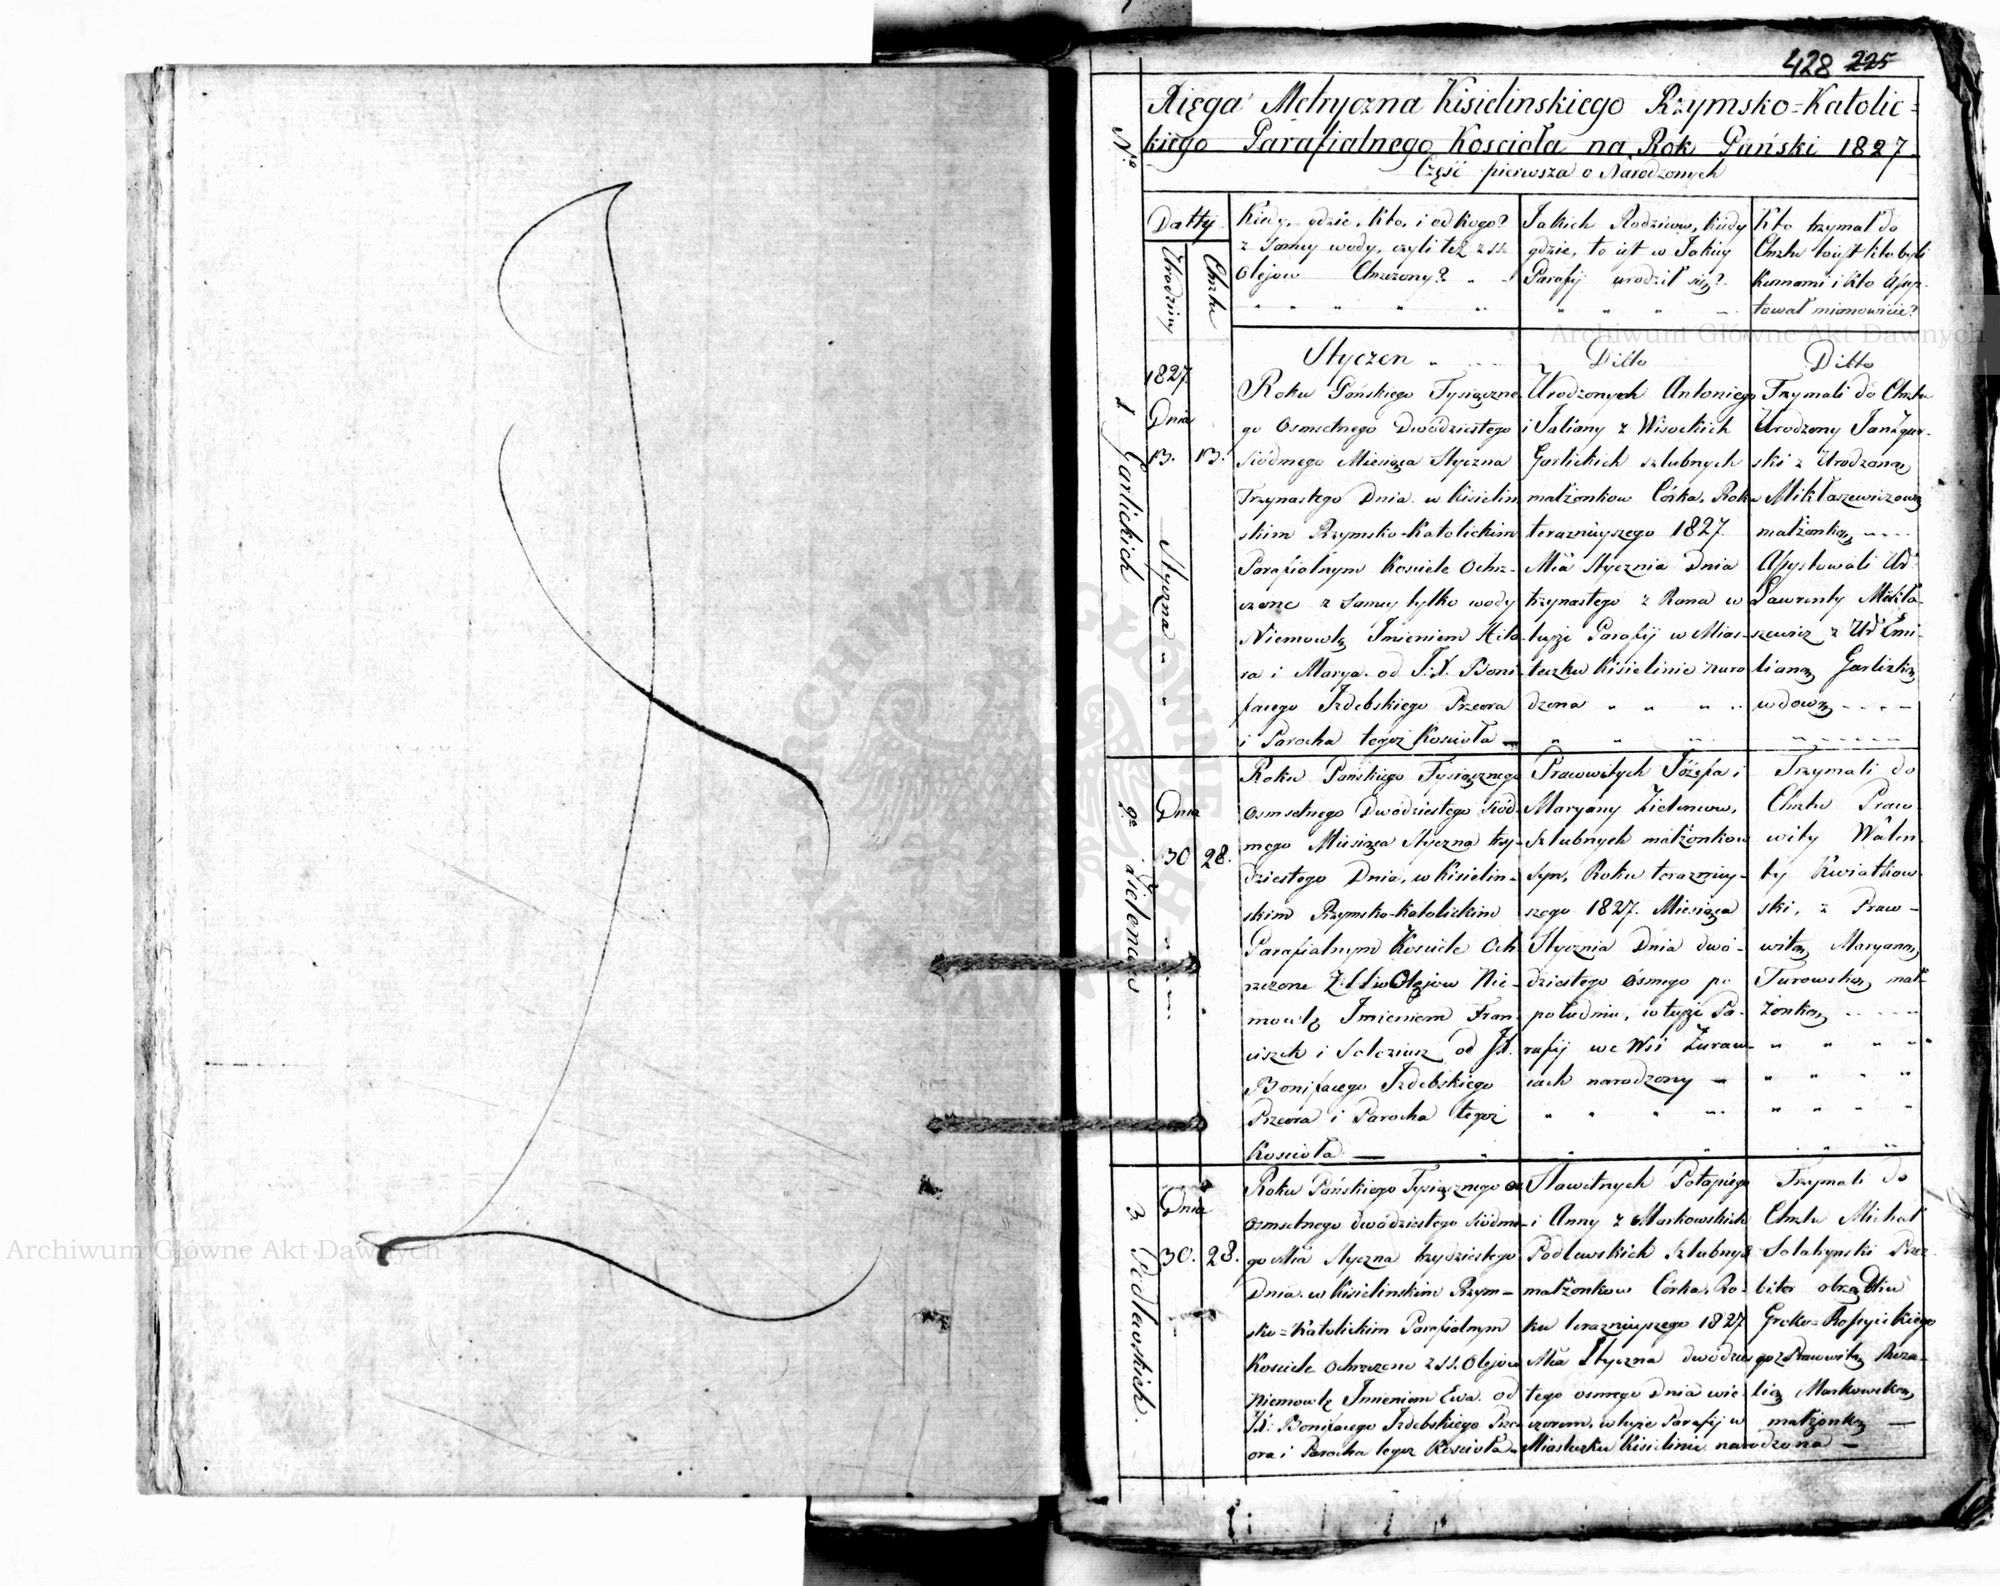 428 225
Xięga Metryczna Kisielinskiego Rzymsko=Katolic=
kiego Parafialnego Koscioła na Rok Pański 1827.
Część pierwsza o Narodzonych
N.o
Datty
Urodziny
Chrztu
Kiedy, gdzie, kto, i od kogo?
z samey wody, czyli też z SS.
Olejow Chrzczony?
Jakich Rodzicow, kiedy
gdzie, to iest w Jakiey
Parafij urodził się?
Kto trzymał do
Chrztu to iest kto byli
Kumami i kto Assys-
tował mianowicie?
1 Garlickich
1827.
Dnia
13. 13.
Styczna
Styczen
Roku Pańskiego Tysiączne-
go Osmsetnego Dwódziestego
siódmego Miesiąca Styczna
Trzynastego Dnia w Kisielin
skim Rzymsko-Katolickim
Parafialnym Kosciele Ochrz-
czone z samey tylko wody
Niemowlę Imieniem Hila-
ra i Marya od J.X. Boni
facego Izdebskiego Przeora
i Parocha tegoż Koscioła
Ditto
Urodzonych Antoniego
i Juliany z Wisockich
Garlickich szlubnych
małżonkow Córka, Roku
teraznieyszego 1827.
Mća Stycznia Dnia
trzynastego z Rana w
teyże Parafij w Mias-
teczku Kisielinie naro
dzona
Ditto
Trzymali do Chrztu
Urodzony Jan
ski z Urodzoną
Mikłaszewiczową
małżonką
Assystowali Ur
Lawrenty Mikła-
szewicz z Ur Emi-
lianą Garlicką
wdową
2o Zielencow
Dnia
30 28.
Roku Pańskiego Tysiącznego
Osmsetnego Dwódziestego siód-
mego Miesiąca Styczna trzy-
dziestego Dnia, w Kisielin-
skim Rzymsko-Katolickim
Parafialnym Kosciele Och
rzczone Z SSw Olejow Nie-
mowlę Imieniem Fran-
ciszek i Saleziusz od JX.
Bonifacego Izdebskiego
Przeora i Parocha tegoż
Koscioła
Prawowitych Józefa i
Maryany Zielencow,
Szlubnych małżonkow
Syn, Roku terazniey-
szego 1827. Miesiąca
Stycznia Dnia dwó-
dziestego ósmego po
południu, w teyże Pa-
rafij we Wsi Żuraw-
cach narodzony
Trzymali do
Chrztu Praw-
wity Walen-
ty Kwiatkow-
ski, z Praw-
witą Maryaną
Turowską mał-
żonką
3. Podlawskich.
Dnia
30. 28.
Roku Pańskiego Tysiącznego os
Osmsetnego dwódziestego siódme-
go Mća Styczna trzydziestego
Dnia w Kisielinskim Rzym-
sko=Katolickim Parafialnym
Kosciele Ochrzczone z SS. Olejow
Niemowlę Imieniem Ewa od
JX: Bonifacego Izdebskiego Prze
ora i Parocha tegoż Koscioła
Sławetnych Potapiego
i Anny z Markowskich
Podlewskich szlubnych
małżonkow Córka, Ro-
ku teraznieyszego 1827
Mća Styczna dwódzies
tego osmego Dnia wie-
czorem, w teyże Parafij w
Miasteczku Kisielinie narodzona
Trzymali do
Chrztu Michał
Prez-
biter obrządku
Greko=Rossyiskiego
z Prawowitą Roza-
lią Markowską
małżonką
Archiwum Główne Akt Dawnych
Archiwum Główne Akt Dawnych